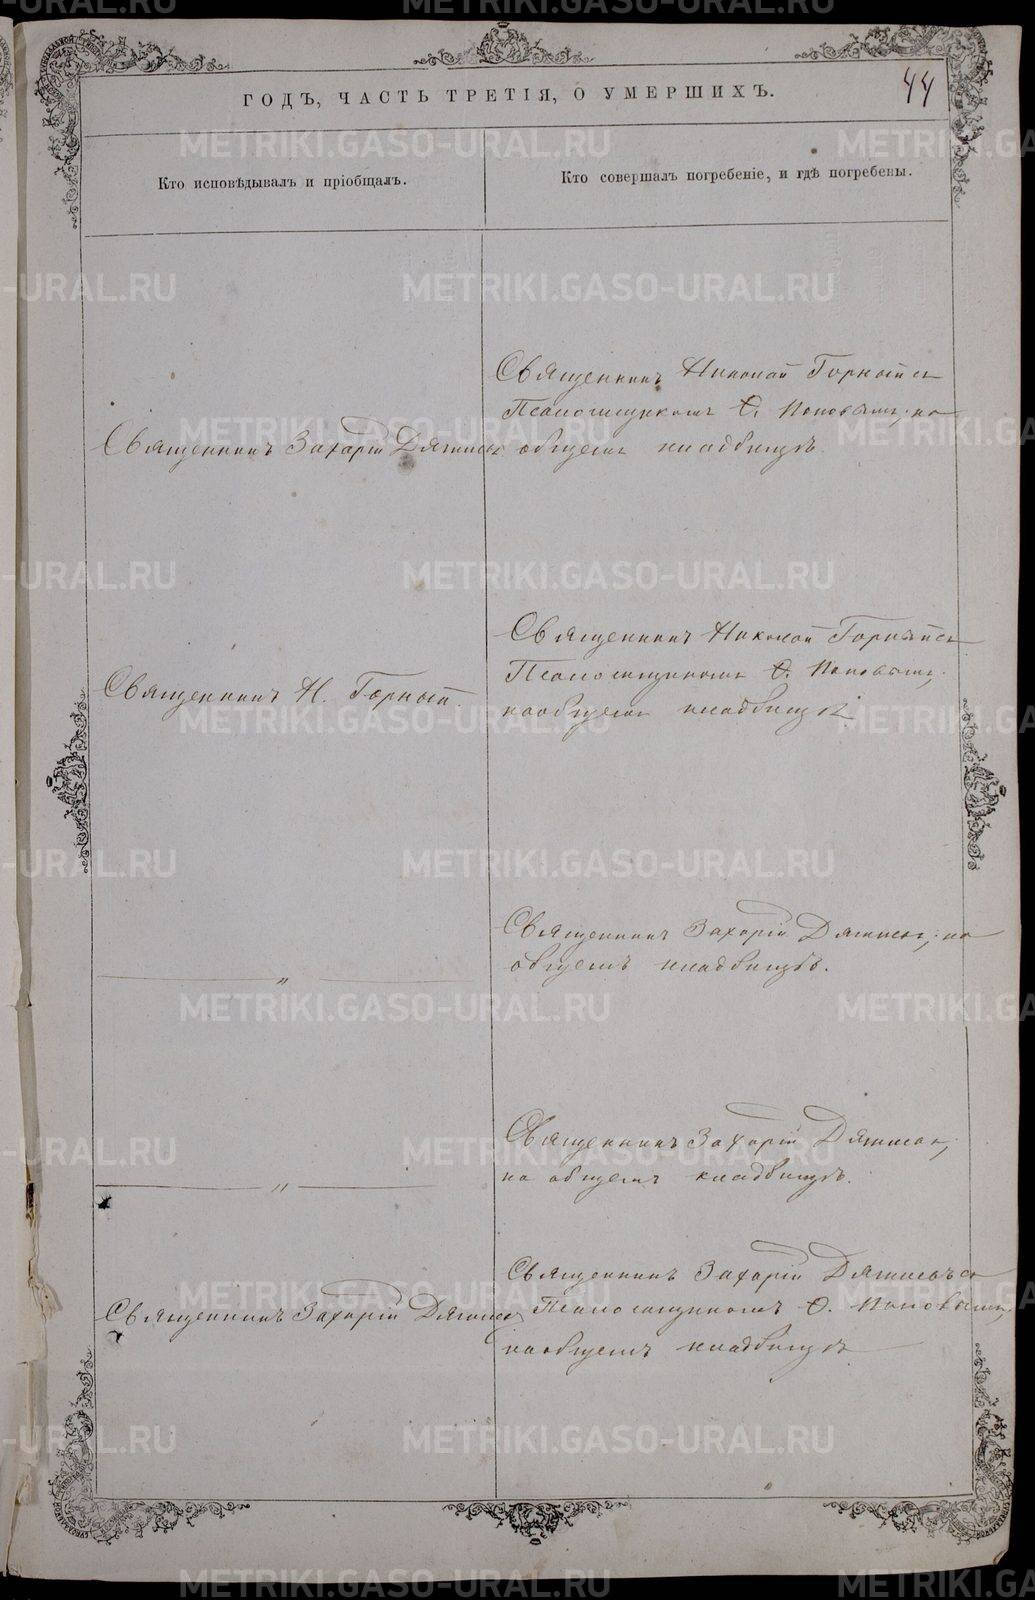 ГОДЪ, ЧАСТЬ ТРЕТІЯ, О УМЕРШИХЪ.
44
Кто исповѣдывалъ и пріобщалъ.
Кто совершалъ погребеніе, и гдѣ погребены.
Священникъ Захарій Дягилев
Священникъ Николай Горный съ
Псаломщикомъ Ѳ. Поповымъ, на
общемъ кладбищѣ.
Священникъ Н. Горный.
Священникъ Николай Горный съ
Псаломщикомъ Ѳ. Поповымъ,
на общемъ кладбищѣ
— „ —
Священникъ Захарій Дягилев, на
общемъ кладбищѣ.
— „ —
Священникъ Захарій Дягилев,
на общемъ кладбищѣ.
Священникъ Захарій Дягилев
Священникъ Захарій Дягилевъ съ
Псаломщикомъ Ѳ. Поповымъ,
на общемъ кладбищѣ
METRIKI.GASO-URAL.RU